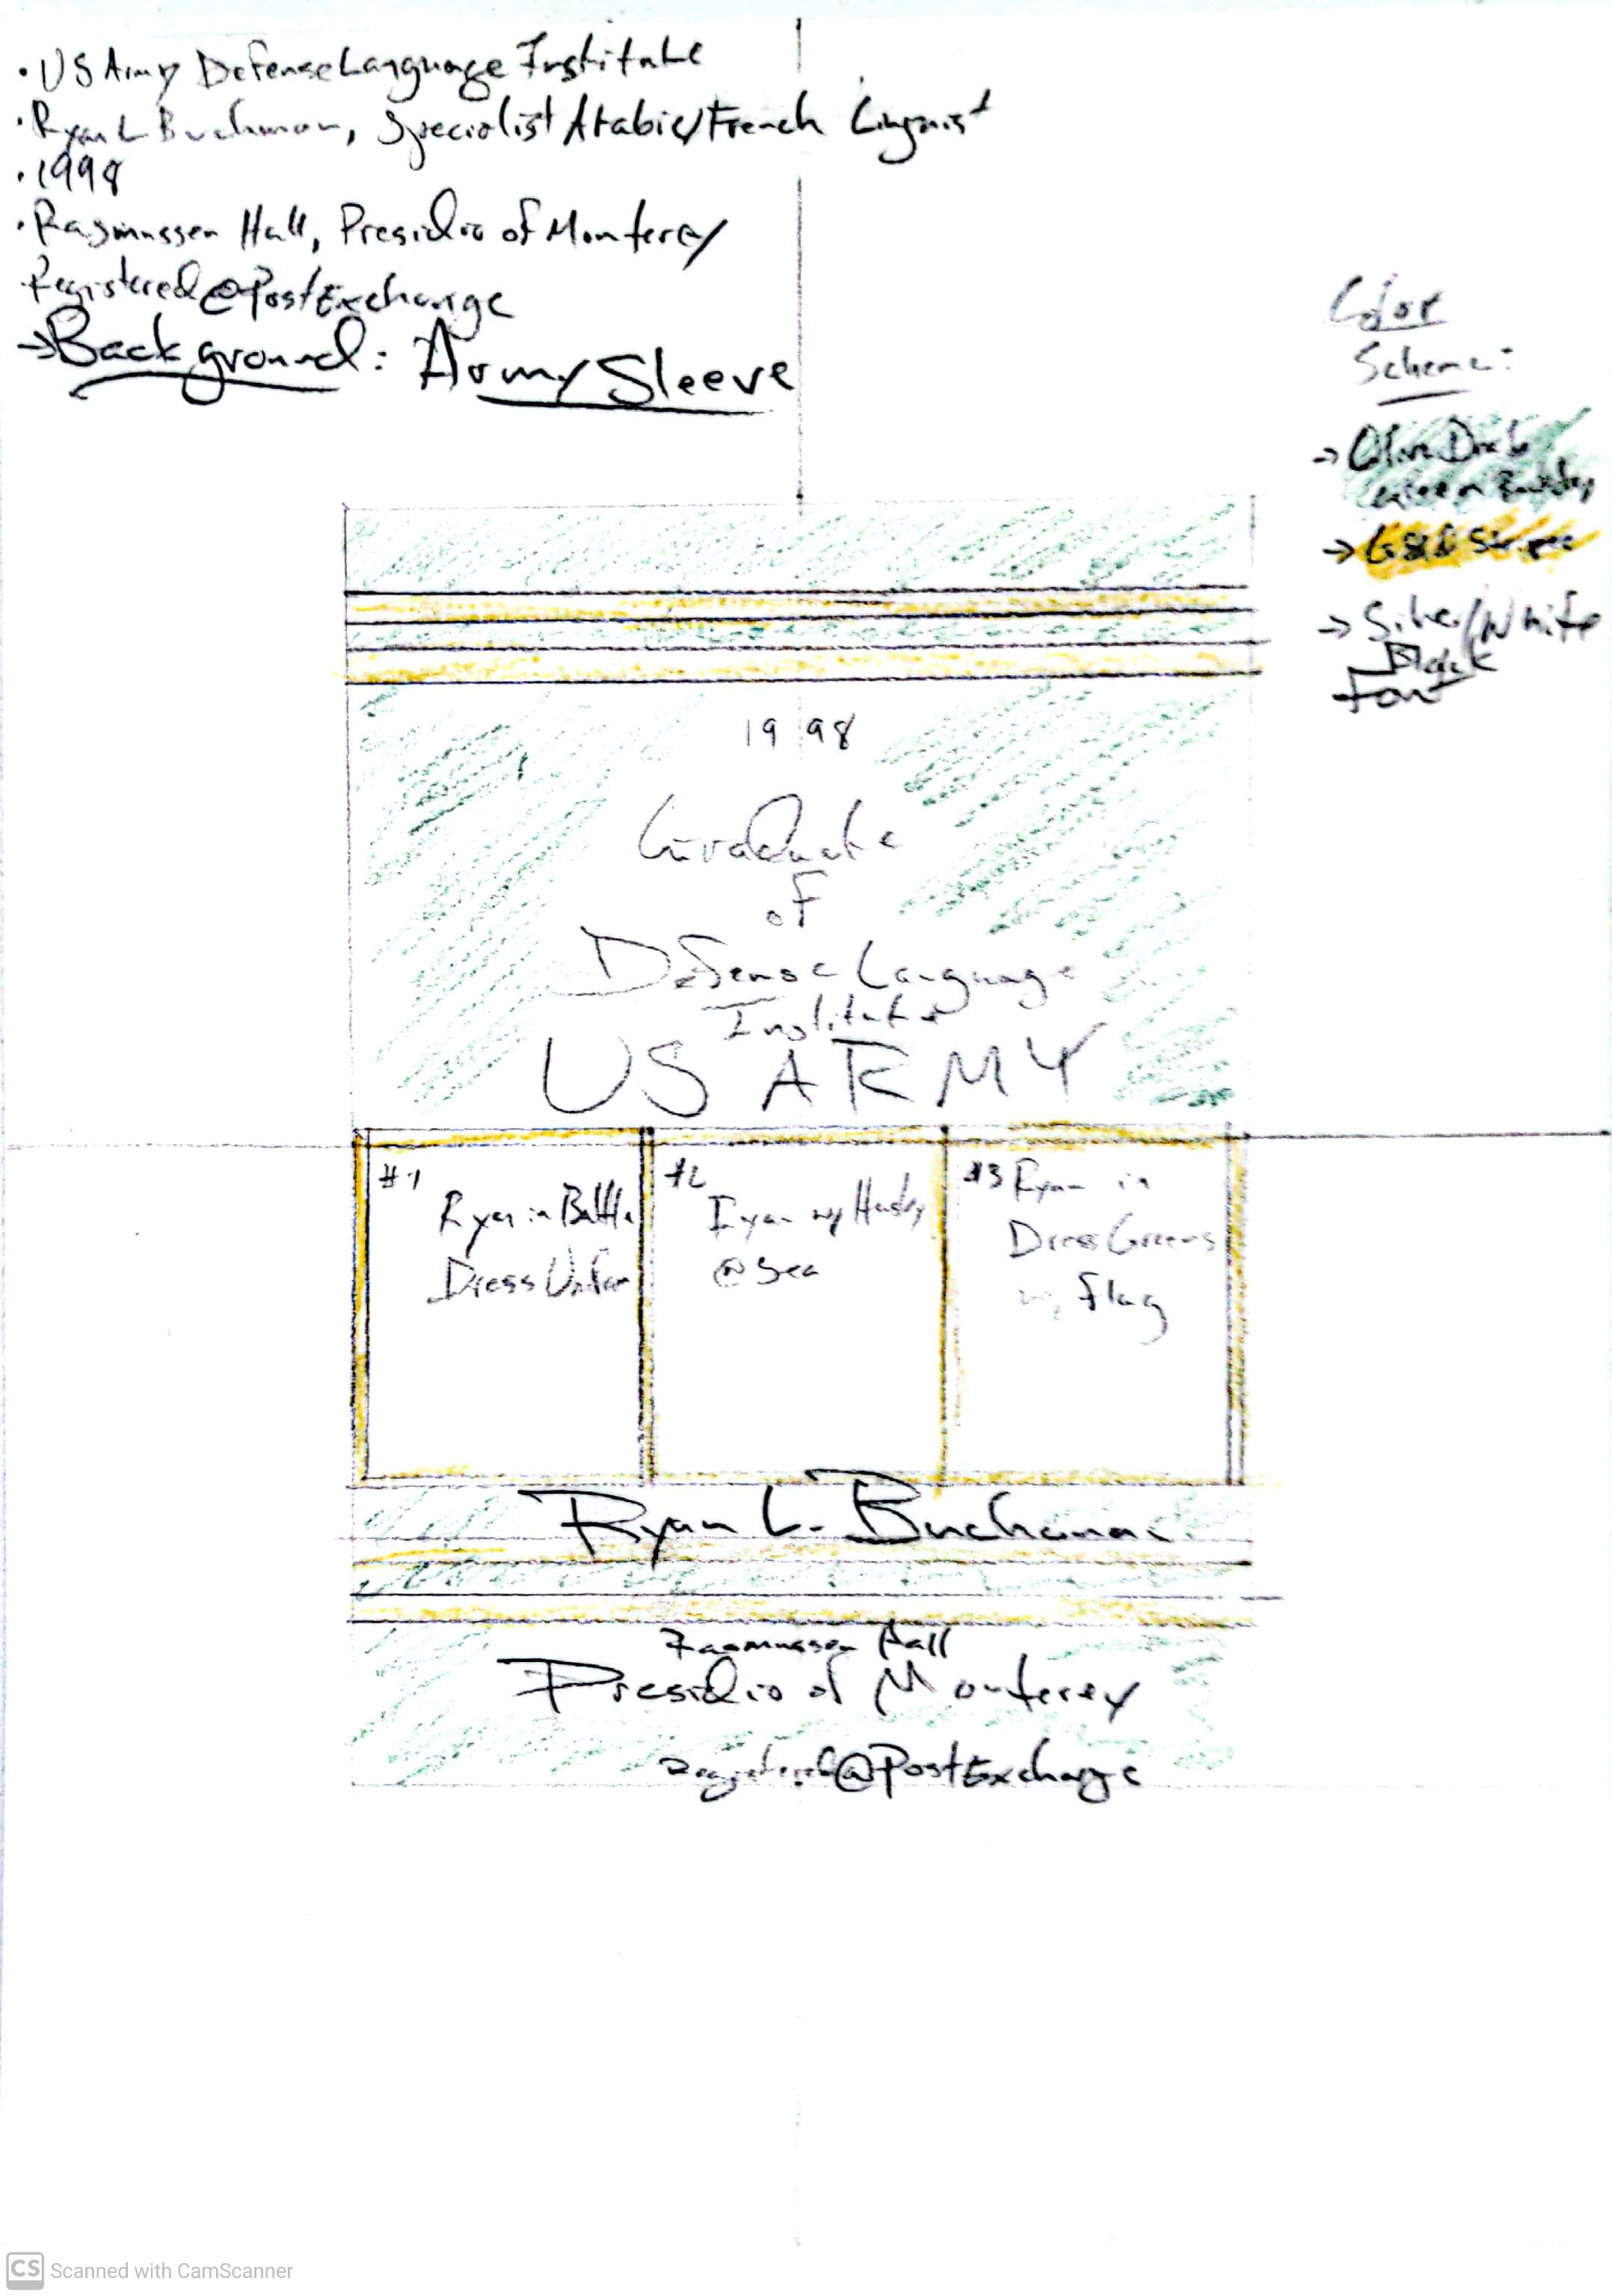 ·US Army Defense Language Institute
·Ryan L Buchanan, Specialist Arabic/French Linguist
·1998
·Rasmussen Hall, Presidio of Monterey
·Registered @ Post Exchange
→Background: Army Sleeve
Color
Scheme:
→ Olive Drab
Green
→ Gold Stripe
→ Silver/White
Black
Font
1998
Graduate
of
Defense Language
Institute
US ARMY
#1
Ryan in Battle
Dress Uniform
#2
Ryan w/ Husky
@ Sea
#3 Ryan in
Dress Greens
w/ flag
Ryan L. Buchanan
Rasmussen Hall
Presidio of Monterey
Registered @ Post Exchange
CS Scanned with CamScanner